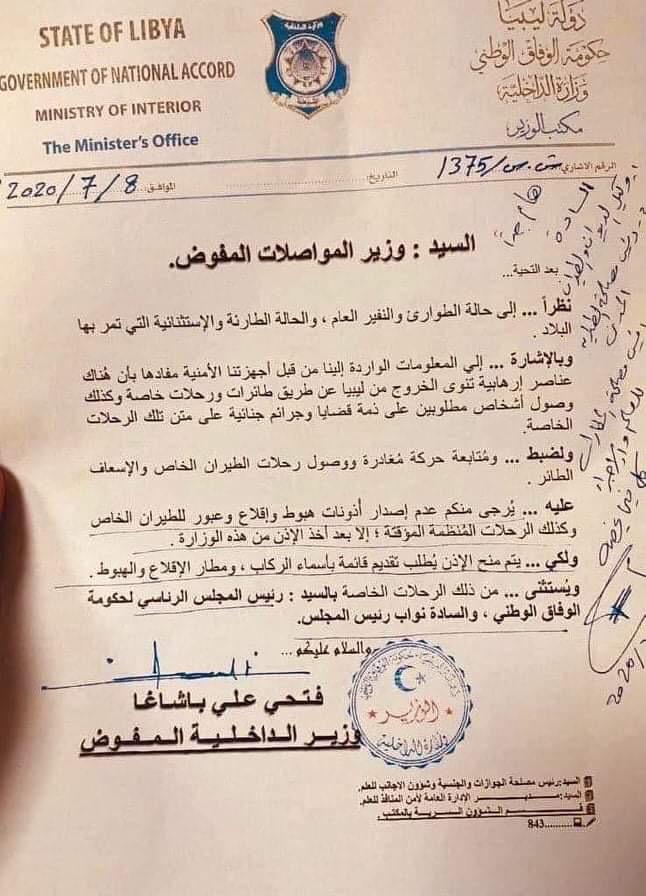 STATE OF LIBYA
GOVERNMENT OF NATIONAL ACCORD
MINISTRY OF INTERIOR
The Minister's Office
دولة ليبيا
حكومة الوفاق الوطني
وزارة الداخلية
مكتب الوزير
الرقم الاشاري 1375
التاريخ:
الموافق: 2020/7/8
هام جدا
السيد : وزير المواصلات المفوض.
بعد التحية...
نظراً ... إلى حالة الطوارئ والنفير العام ، والحالة الطارئة والإستثنائية التي تمر بها
البلاد .
وبالإشارة ... إلي المعلومات الواردة إلينا من قبل أجهزتنا الأمنية مفادها بأن هُناك
عناصر إرهابية تنوى الخروج من ليبيا عن طريق طائرات ورحلات خاصة وكذلك
وصول أشخاص مطلوبين على ذمة قضايا وجرائم جنائية على متن تلك الرحلات
الخاصة.
ولضبط ... ومُتابعة حركة مُغادرة ووصول رحلات الطيران الخاص والإسعاف
الطائر .
عليه ... يُرجى منكم عدم إصدار أذونات هبوط وإقلاع وعبور للطيران الخاص
وكذلك الرحلات المُنظمة المؤقتة ؛ إلا بعد أخذ الإذن من هذه الوزارة .
ولكي ... يتم منح الإذن يُطلب تقديم قائمة بأسماء الركاب ، ومطار الإقلاع والهبوط .
ويُستثنى ... من ذلك الرحلات الخاصة بالسيد : رئيس المجلس الرئاسي لحكومة
الوفاق الوطني ، والسادة نواب رئيس المجلس.
والسلام عليكم ...
فتحي علي باشاغا
وزير الداخلية المفوض
الوزير
وزارة الداخلية
السيد:رئيس مصلحة الجوازات والجنسية وشؤون الاجانب للعلم.
السيد:مدير الإدارة العامة لأمن المنافذ للعلم.
قسم الشؤون السرية بالمكتب .
843..........